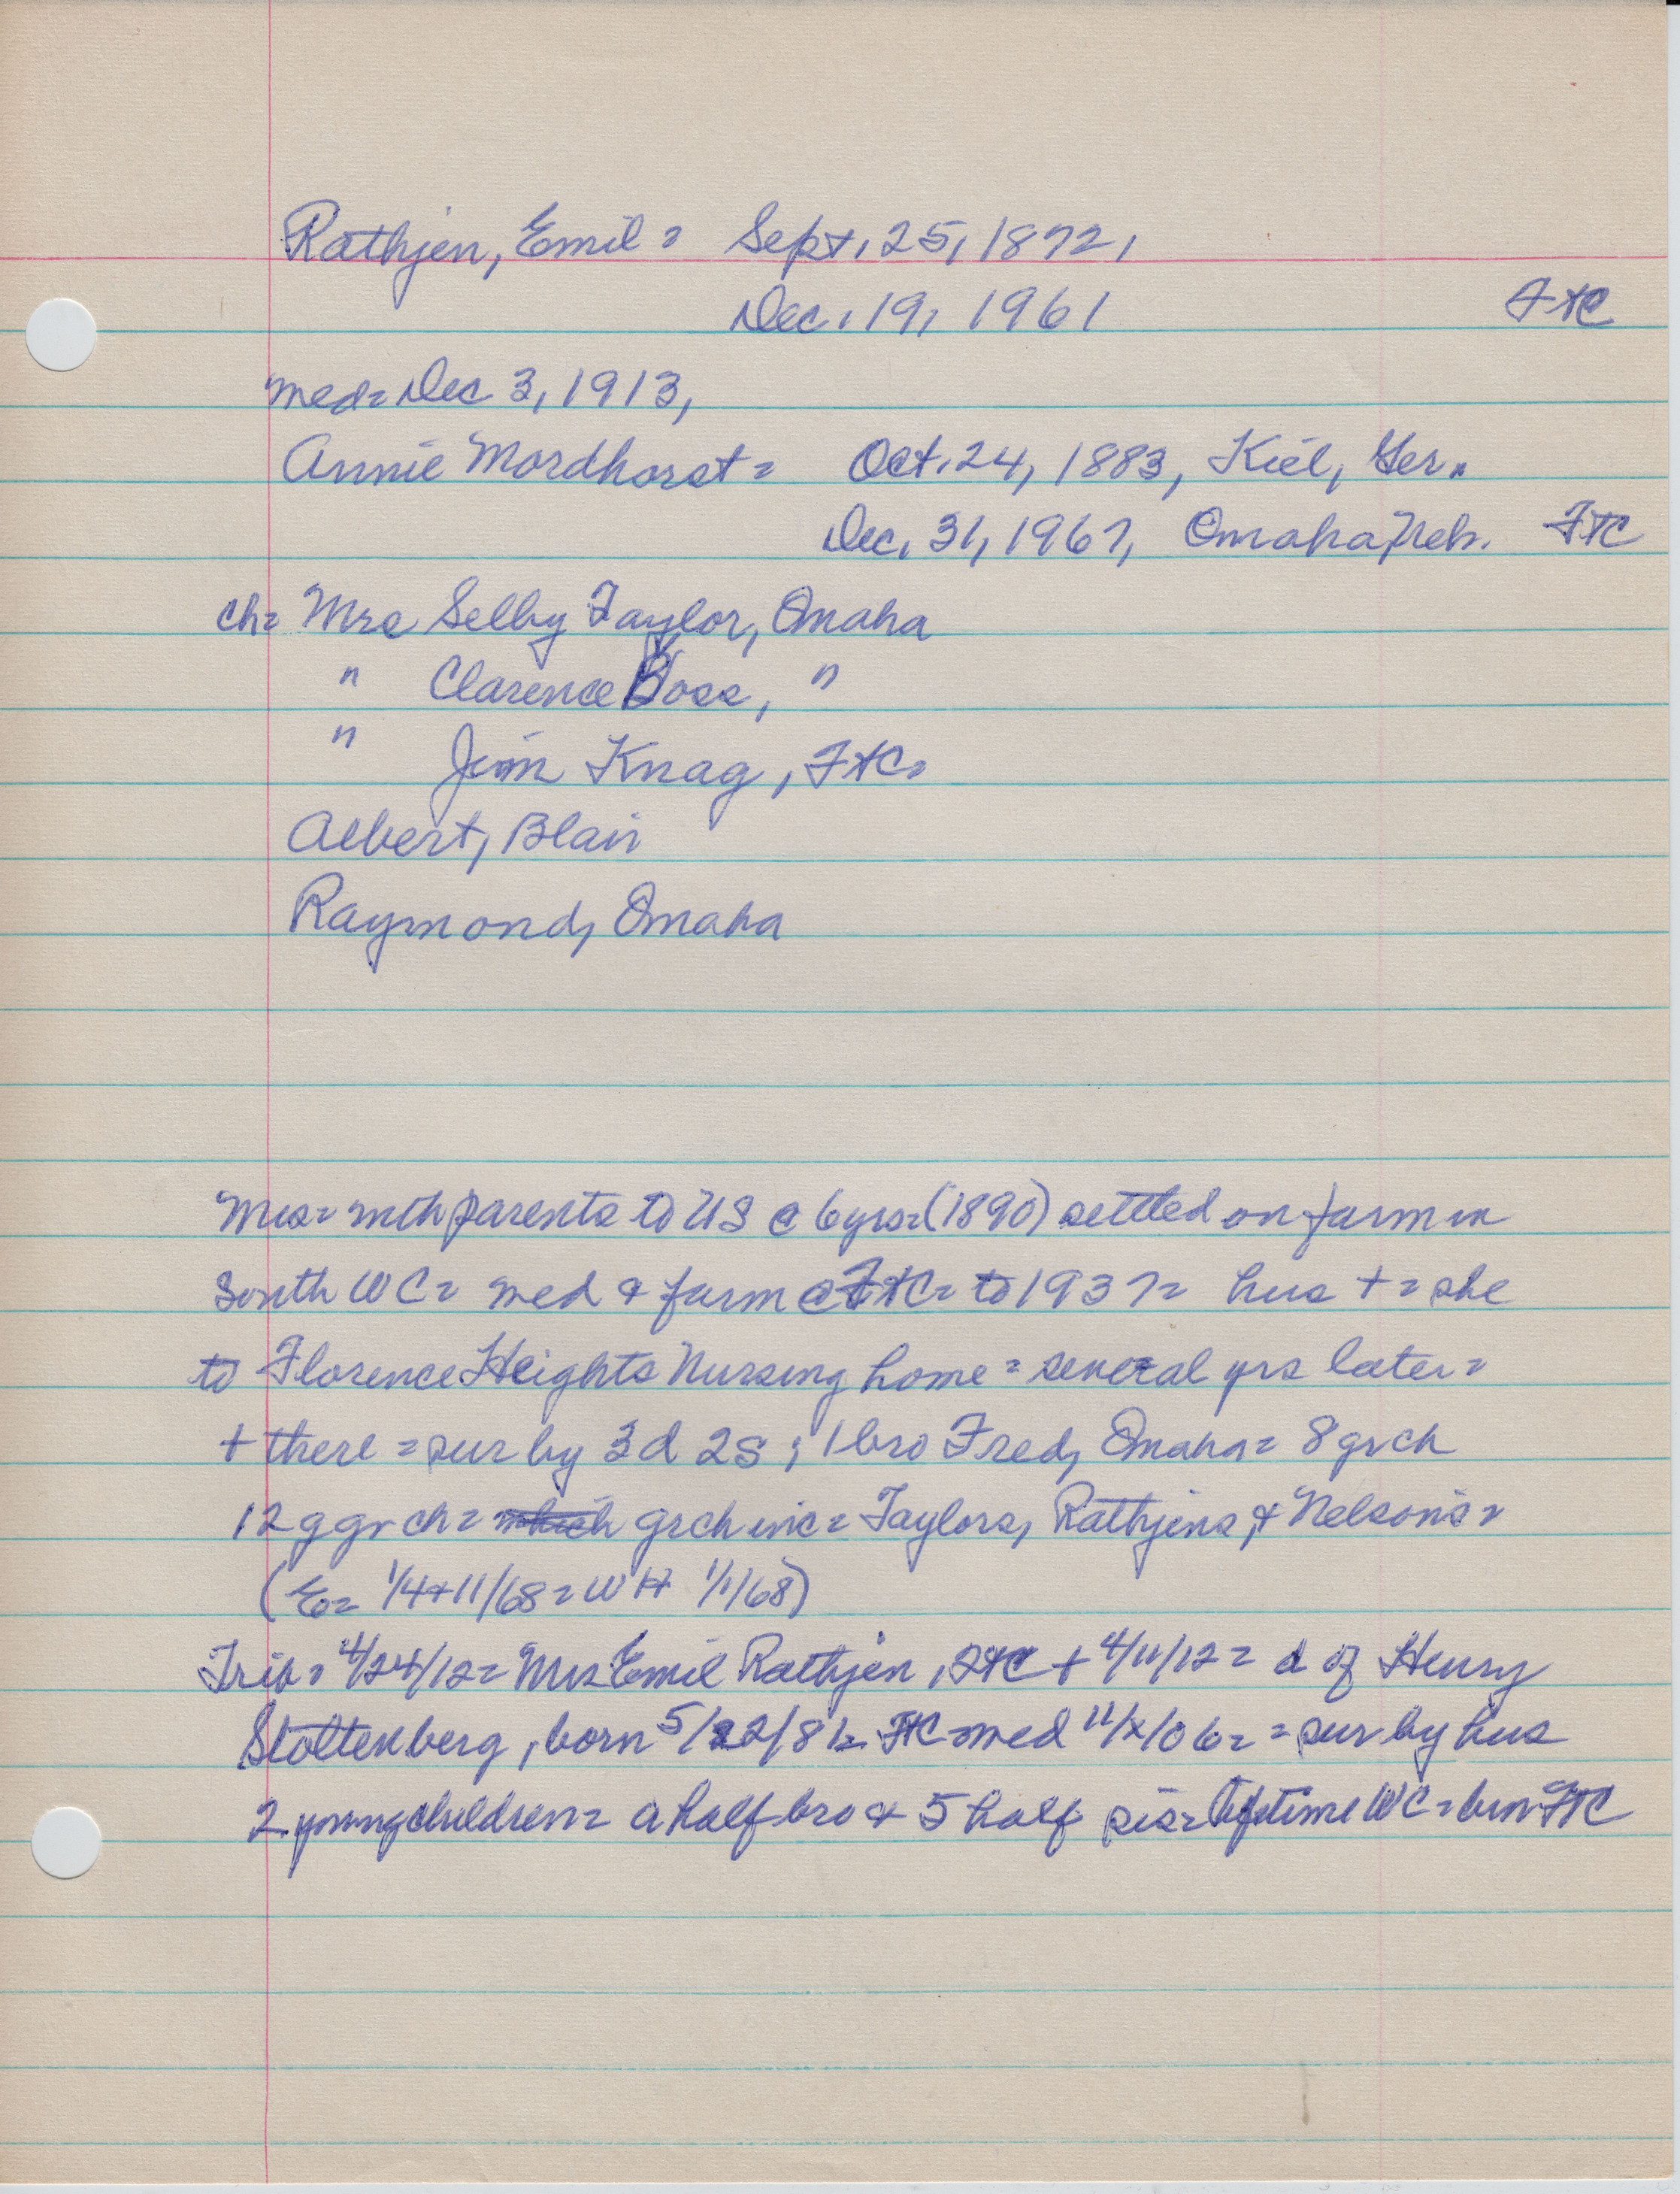 Rathjen, Emil = Sept. 25, 1872,
Dec. 19, 1961 FtC
med = Dec 3, 1913,
Annie Mordhorst = Oct. 24, 1883, Kiel, Ger.
Dec. 31, 1967, Omaha, Neb. FtC
ch = Mrs Selby Taylor, Omaha
" Clarence Boss, "
" Jim Knag, FtC.
Albert, Blair
Raymond, Omaha
Mrs = with parents to US @ 6 yrs = (1890) settled on farm in
South WC = med & farm @ FtC = to 1937 = hus + = she
to Florence Heights Nursing home = several yrs later =
+ there = sur by 3 d 2 s ; 1 bro Fred, Omaha = 8 grch
12 ggrch = which grch inc = Taylors, Rathjens, & Nelsons =
(E = 1/4 + 11/68 = WH 1/1/68)
Trib = 4/24/12 = Mrs Emil Rathjen, FtC + 4/11/12 = d of Henry
Stoltenberg, born 5/22/81 = FtC = med 11/x/06 = = sur by hus
2 young children = a half bro & 5 half sis = lifetime WC = brn FtC